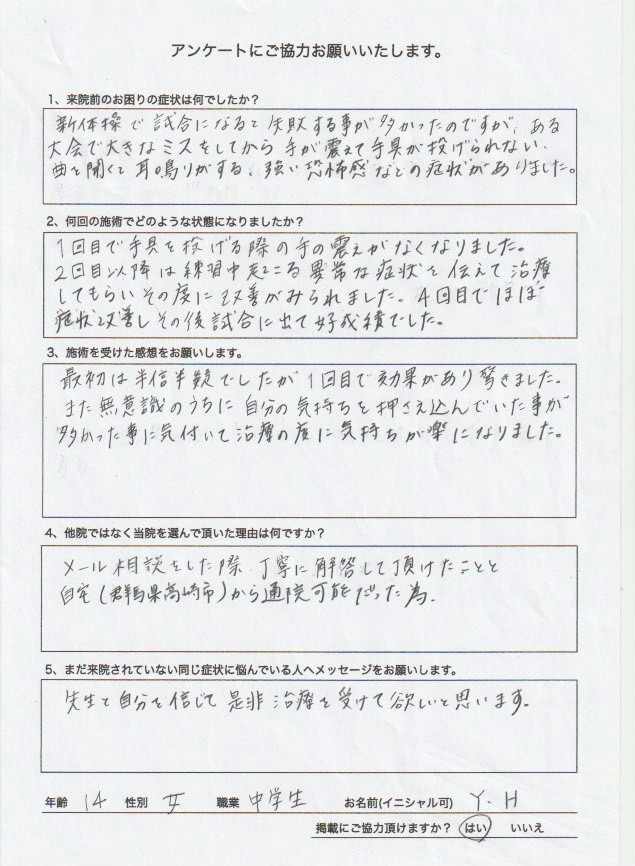 アンケートにご協力お願いいたします。
1、来院前のお困りの症状は何でしたか？
新体操で試合になると失敗する事が多かったのですが、ある
大会で大きなミスをしてから手が震えて手具が投げられない、
曲を聞くと耳鳴りがする、強い恐怖感などの症状がありました。
2、何回の施術でどのような状態になりましたか？
1回目で手具を投げる際の手の震えがなくなりました。
2回目以降は練習中起こる異常な症状を伝えて治療
してもらいその度に改善がみられました。4回目でほぼ
症状改善しその後試合に出て好成績でした。
3、施術を受けた感想をお願いします。
最初は半信半疑でしたが1回目で効果があり驚きました。
また無意識のうちに自分の気持ちを押さえ込んでいた事が
多かった事に気付いて治療の度に気持ちが楽になりました。
4、他院ではなく当院を選んで頂いた理由は何ですか？
メール相談をした際、丁寧に解答して頂けたことと
自宅(群馬県高崎市)から通院可能だった為。
5、まだ来院されていない同じ症状に悩んでいる人へメッセージをお願いします。
先生と自分を信じて是非治療を受けて欲しいと思います。
年齢 14 性別 女 職業 中学生 お名前(イニシャル可) Y.H
掲載にご協力頂けますか？ はい いいえ